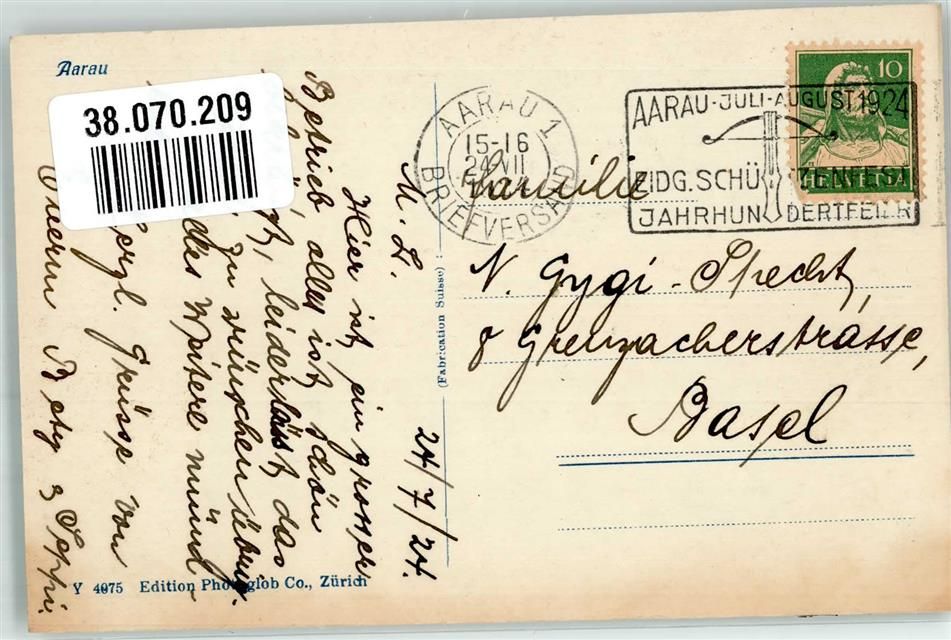 Aarau
38.070.209
AARAU 1
15-16
24.VII
BRIEFVERSAND
AARAU-JULI-AUGUST 1924
EIDG. SCHÜTZENFEST
JAHRHUNDERTFEIER
10
HELVETIA
Familie
N. Gygi-Specht,
8 Grenzacherstrasse,
Basel
(Fabrication Suisse)
24/7/24.
M. L.
Hier ist ein grosser
Betrieb, alles ist schön
leider lässt das
zu wünschen übrig.
des Weitere münd
Herzl. Grüsse von
Eurem Betty & Seppi.
Y 4075 Edition Photoglob Co., Zürich